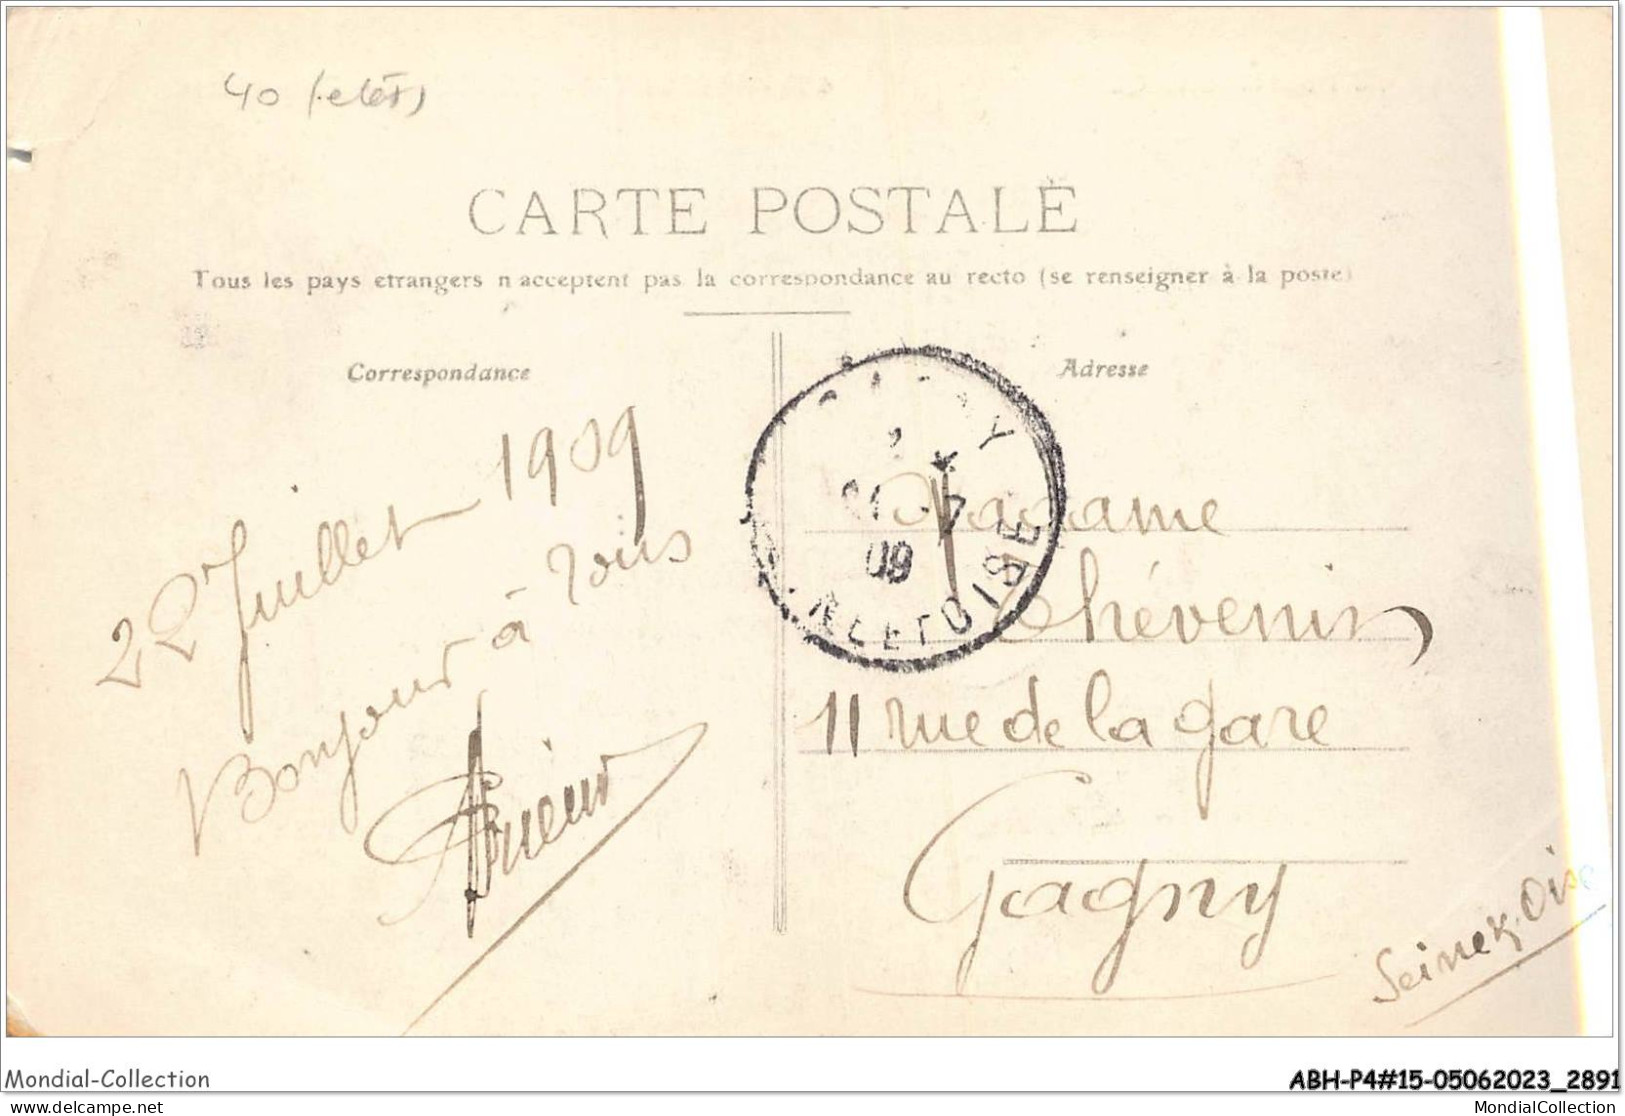 40
CARTE POSTALE
Tous les pays etrangers n acceptent pas la correspondance au recto (se renseigner à la poste)
Correspondance
22 Juillet 1909
Bonjour à tous
Adresse
GAGNY
7
09
NE ET OISE
Madame
Thévenin
11 rue de la gare
Gagny
Seine & Oise
Mondial-Collection
ABH-P4#15-05062023_2891
delcampe.net
MondialCollection